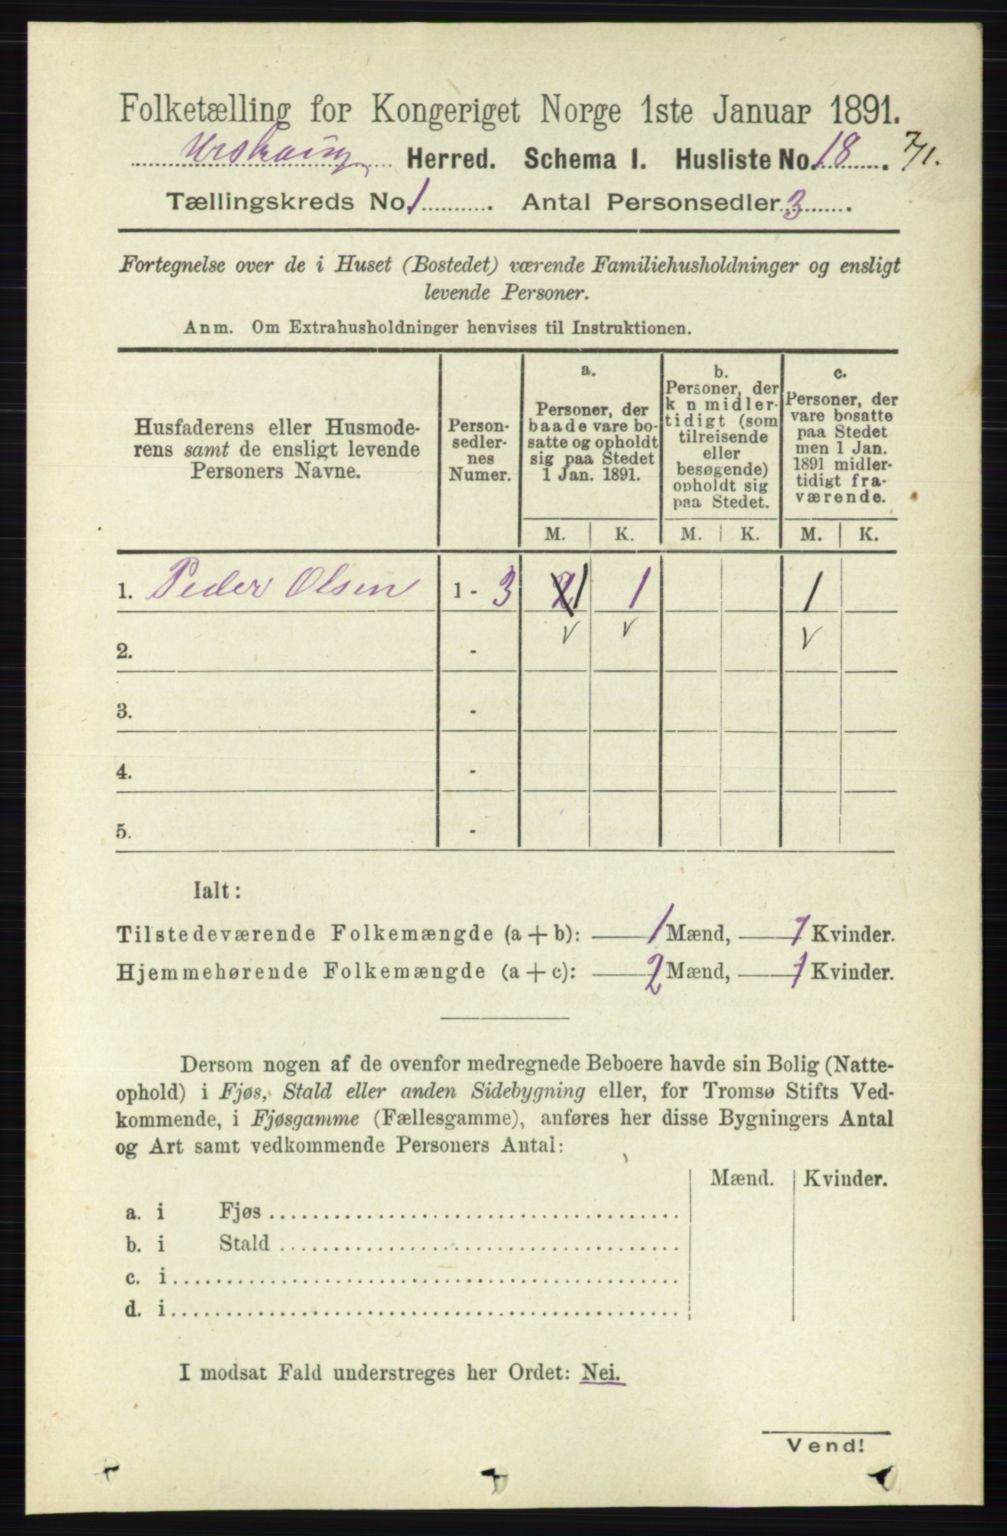 Folketælling for Kongeriget Norge 1ste Januar 1891.
Urskoug Herred. Schema I. Husliste No. 18. 7/1.
Tællingskreds No. 1. Antal Personsedler 3.
Fortegnelse over de i Huset (Bostedet) værende Familiehusholdninger og ensligt
levende Personer.
Anm. Om Extrahusholdninger henvises til Instruktionen.
Husfaderens eller Husmode-
rens samt de ensligt levende
Personers Navne.
Person-
sedler-
nes
Numer.
a.
Personer, der
baade vare bo-
satte og opholdt
sig paa Stedet
1 Jan. 1891.
b.
Personer, der
k n midler-
tidigt (som
tilreisende
eller
besøgende)
opholdt sig
paa Stedet.
c.
Personer, der
vare bosatte
paa Stedet
men 1 Jan.
1891 midler-
tidigt fra-
værende.
M. K. M. K. M. K.
1. Peder Olsen 1 - 3 2 1 1 1
v v v
2. -
3. -
4. -
5. -
Ialt:
Tilstedeværende Folkemængde (a + b): 1 Mænd, 1 Kvinder.
Hjemmehørende Folkemængde (a + c): 2 Mænd, 1 Kvinder.
Dersom nogen af de ovenfor medregnede Beboere havde sin Bolig (Natte-
ophold) i Fjøs, Stald eller anden Sidebygning eller, for Tromsø Stifts Ved-
kommende, i Fjøsgamme (Fællesgamme), anføres her disse Bygningers Antal
og Art samt vedkommende Personers Antal:
Mænd. Kvinder.
a. i Fjøs
b. i Stald
c. i
d. i
I modsat Fald understreges her Ordet: Nei.
Vend!